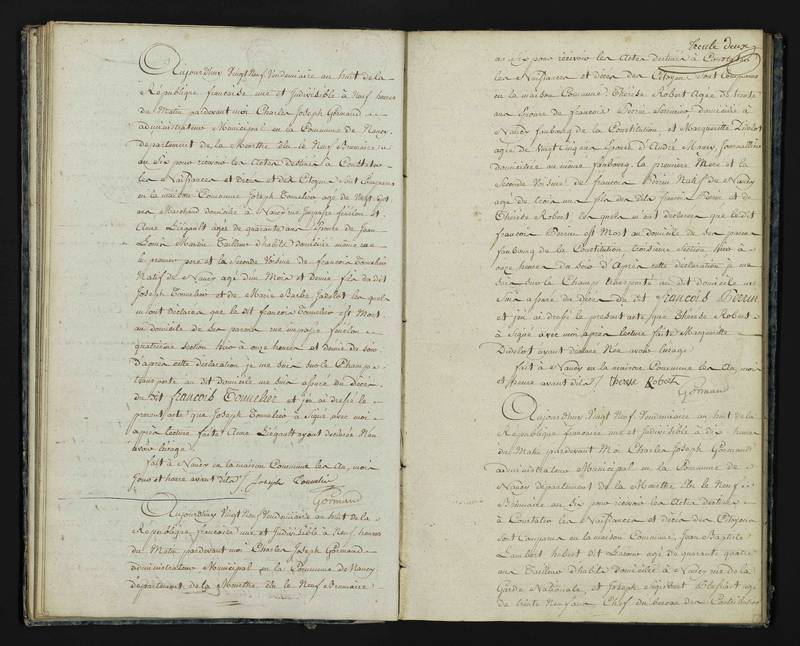 Aujourdhuy Vingt Neuf Vendemiaire an huit de la
République francaise une et Indivisible à Neuf heures
du Matin pardevant moi Charles Joseph Gormand
administrateur Municipal en la Commune de Nancy,
departement de la Meurthe Elu le Neuf Brumaire
an Six pour recevoir les Actes destinés à Constater
les Naissances et décès des Citoyens, sont Comparus
en la maison Commune Joseph Tomelier agé de
ans Marchand domicilié à Nancy rue Impasse fénelon et
Anne Liégault agée de quarante ans Epouse de Jean
Louis Tailleur d'habits domicilié même rue
le premier pere et la Seconde Voisine de françois Tomelier
Natif de Nancy agé d'un Mois et demie fils du dit
Joseph Tomelier et de Marie Barbe les quels
m'ont declarés que le dit françois Tomelier est Mort
au domicile de ses parens rue impasse fénelon
quatrieme section hier à onze heures et demie du Soir
d'après cette déclaration je me suis sur le Champ
transporté au dit domicile me suis assuré du décès
du dit françois Tomelier et j'en ai dressé le
present acte que Joseph Tomelier a Signé avec moi
après lecture faite Anne Liégault ayant declarée Ne
savoir l'usage
fait à Nancy en la maison Commune les an, mois
Jour et heure avant dits // Joseph Tomelier
Gormand
Aujourdhuy Vingt Neuf Vendemiaire an huit de la
République francaise une et Indivisible à Neuf heures
du Matin pardevant moi Charles Joseph Gormand
administrateur Municipal en la Commune de Nancy
departement de la Meurthe élu le Neuf Brumaire
Trente deux
an Six pour recevoir les Actes destinés à Constater
les Naissances et décès des Citoyens sont Comparus
en la maison Commune, Thérèse Robert Agée de trente
ans Epouse de francois Perrin domicilié à
Nancy faubourg de la Constitution, et Marguerite Didelot
agée de Vingt Cinq ans Epouse d'André
domiciliée au même faubourg. la premiere Mere et la
Seconde Voisine de francois Perrin Natif de Nancy
agé de trois ans fils du dit francois Perrin et de
Thérèse Robert les quels m'ont declarés que le dit
francois Perrin est Mort au domicile de ses parens
faubourg de la Constitution troisieme Section hier à
onze heures du Soir d'Après cette déclaration je me
suis sur le Champ transporté au dit domicile me
Suis assuré du décès du dit francois Perrin
et j'en ai dressé le present acte que Thérèse Robert
à Signé avec moi après lecture faite Marguerite
Didelot ayant declaré Ne savoir l'usage
fait à Nancy en la maison Commune les an, mois
et heure avant dits // therese Robert
Gormand
Aujourdhuy Vingt Neuf Vendemiaire an huit de la
République francaise une et Indivisible à dix heures
du Matin pardevant Moi Charles Joseph Gormand
administrateur Municipal en la Commune de
Nancy département de la Meurthe Elu le Neuf
Brumaire an Six pour recevoir les Actes destinés
à Constater les Naissances et décès des Citoyens
sont Comparus en la maison Commune, Jean Baptiste
Lambert hubert dit agé de quarante quatre
ans Tailleur d'habits domicilié à Nancy rue de la
Garde Nationale, et Joseph Sigisbert agé
de trente Neuf ans Chef du bureau des Contributions